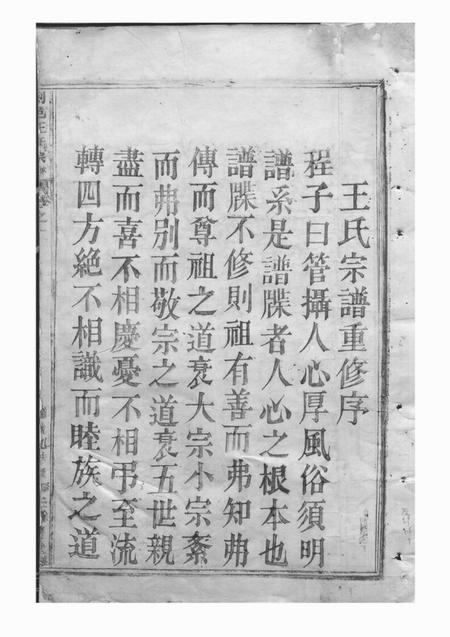 王氏宗譜重修序
程子曰管攝人心厚風俗須明
譜系是譜牒者人心之根本也
譜牒不修則祖有善而弗知弗
傳而尊祖之道衰大宗小宗紊
而弗別而敬宗之道衰五世親
盡而喜不相慶憂不相弔至流
轉四方絶不相識而睦族之道